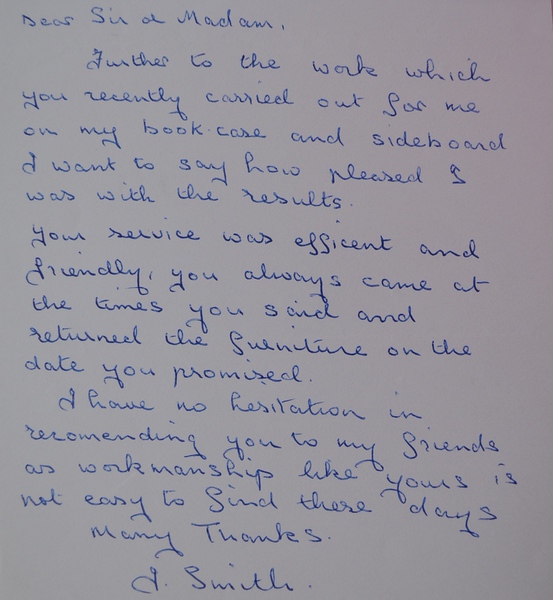 Dear Sir or Madam,
Further to the work which
you recently carried out for me
on my book-case and sideboard
I want to say how pleased I
was with the results.
Your service was efficent and
friendly, you always came at
the times you said and
returned the furniture on the
date you promised.
I have no hesitation in
recomending you to my friends
as workmanship like yours is
not easy to find these days
Many Thanks.
J. Smith.